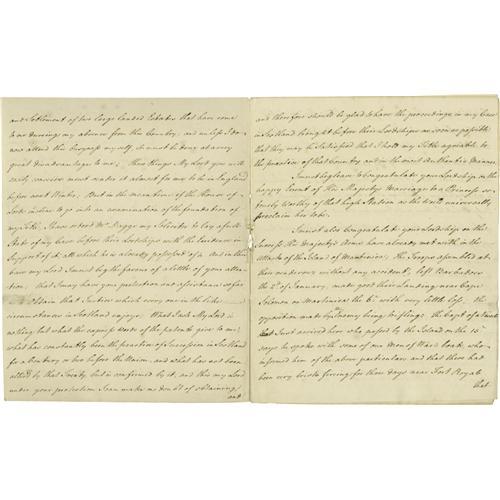 and Settlement of two large Landed Estates that have come
to me during my absence from the Country, and unless I do
now attend the Surveys myself, it must be done at very
great disadvantage to me; These things My Lord you will
easily conceive must make it almost for me to be in England
before next Winter, But in the mean time if the House of
Lords incline to go into an examination of the foundation of
my Title, I have ordered Mr. my Solicitor to lay a full
State of my Case before their Lordships with the Evidence in
Support of it all which he is already possessed of & as in this
Case my Lord I must beg the favour of a little of your atten
tion, that I may have your protection and assistance so far
Obtain that Justice which every one in the like
circumstances in Scotland enjoys. What I ask My Lord is
nothing but what the express Words of the patent give to me;
what has constantly been the practice of Succession in Scotland
for a Century or two before the Union, and what has not been
altered by that Treaty but is confirmed by it, and this my Lord
under your protection I can make no doubt of obtaining
and
and therefore should be glad to have the proceedings in my Case
in Scotland brought before their Lordships as soon as possible
that they may be satisfied that I hold my Title agreeable to
the practice of that Country and in the most Authentic Manner.
I must beg leave to Congratulate your Lordship on the
happy Event of His Majestys Marriage to a Princess so
truely Worthy of that high Station as the World universally
proclaim her to be.
I must also Congratulate your Lordship on the
Success His Majestys Arms have already met with in the
Attack of the Island of Martinico; the Troops assembled at
their rendevous without any accident, left Barbadoes
the 2d. of January, made good their Landing near Cape
Solomon in Martinico the 6th. with very little loss, the
opposition made by Enemy being trifling. The Capt. of a
that Just arrived here who passed by the Island on the 10th
says he spoke with some of our Men of War's boats, who
informed him of the above particulars and that there had
been very brisk fireing for three days near Fort Royale
that